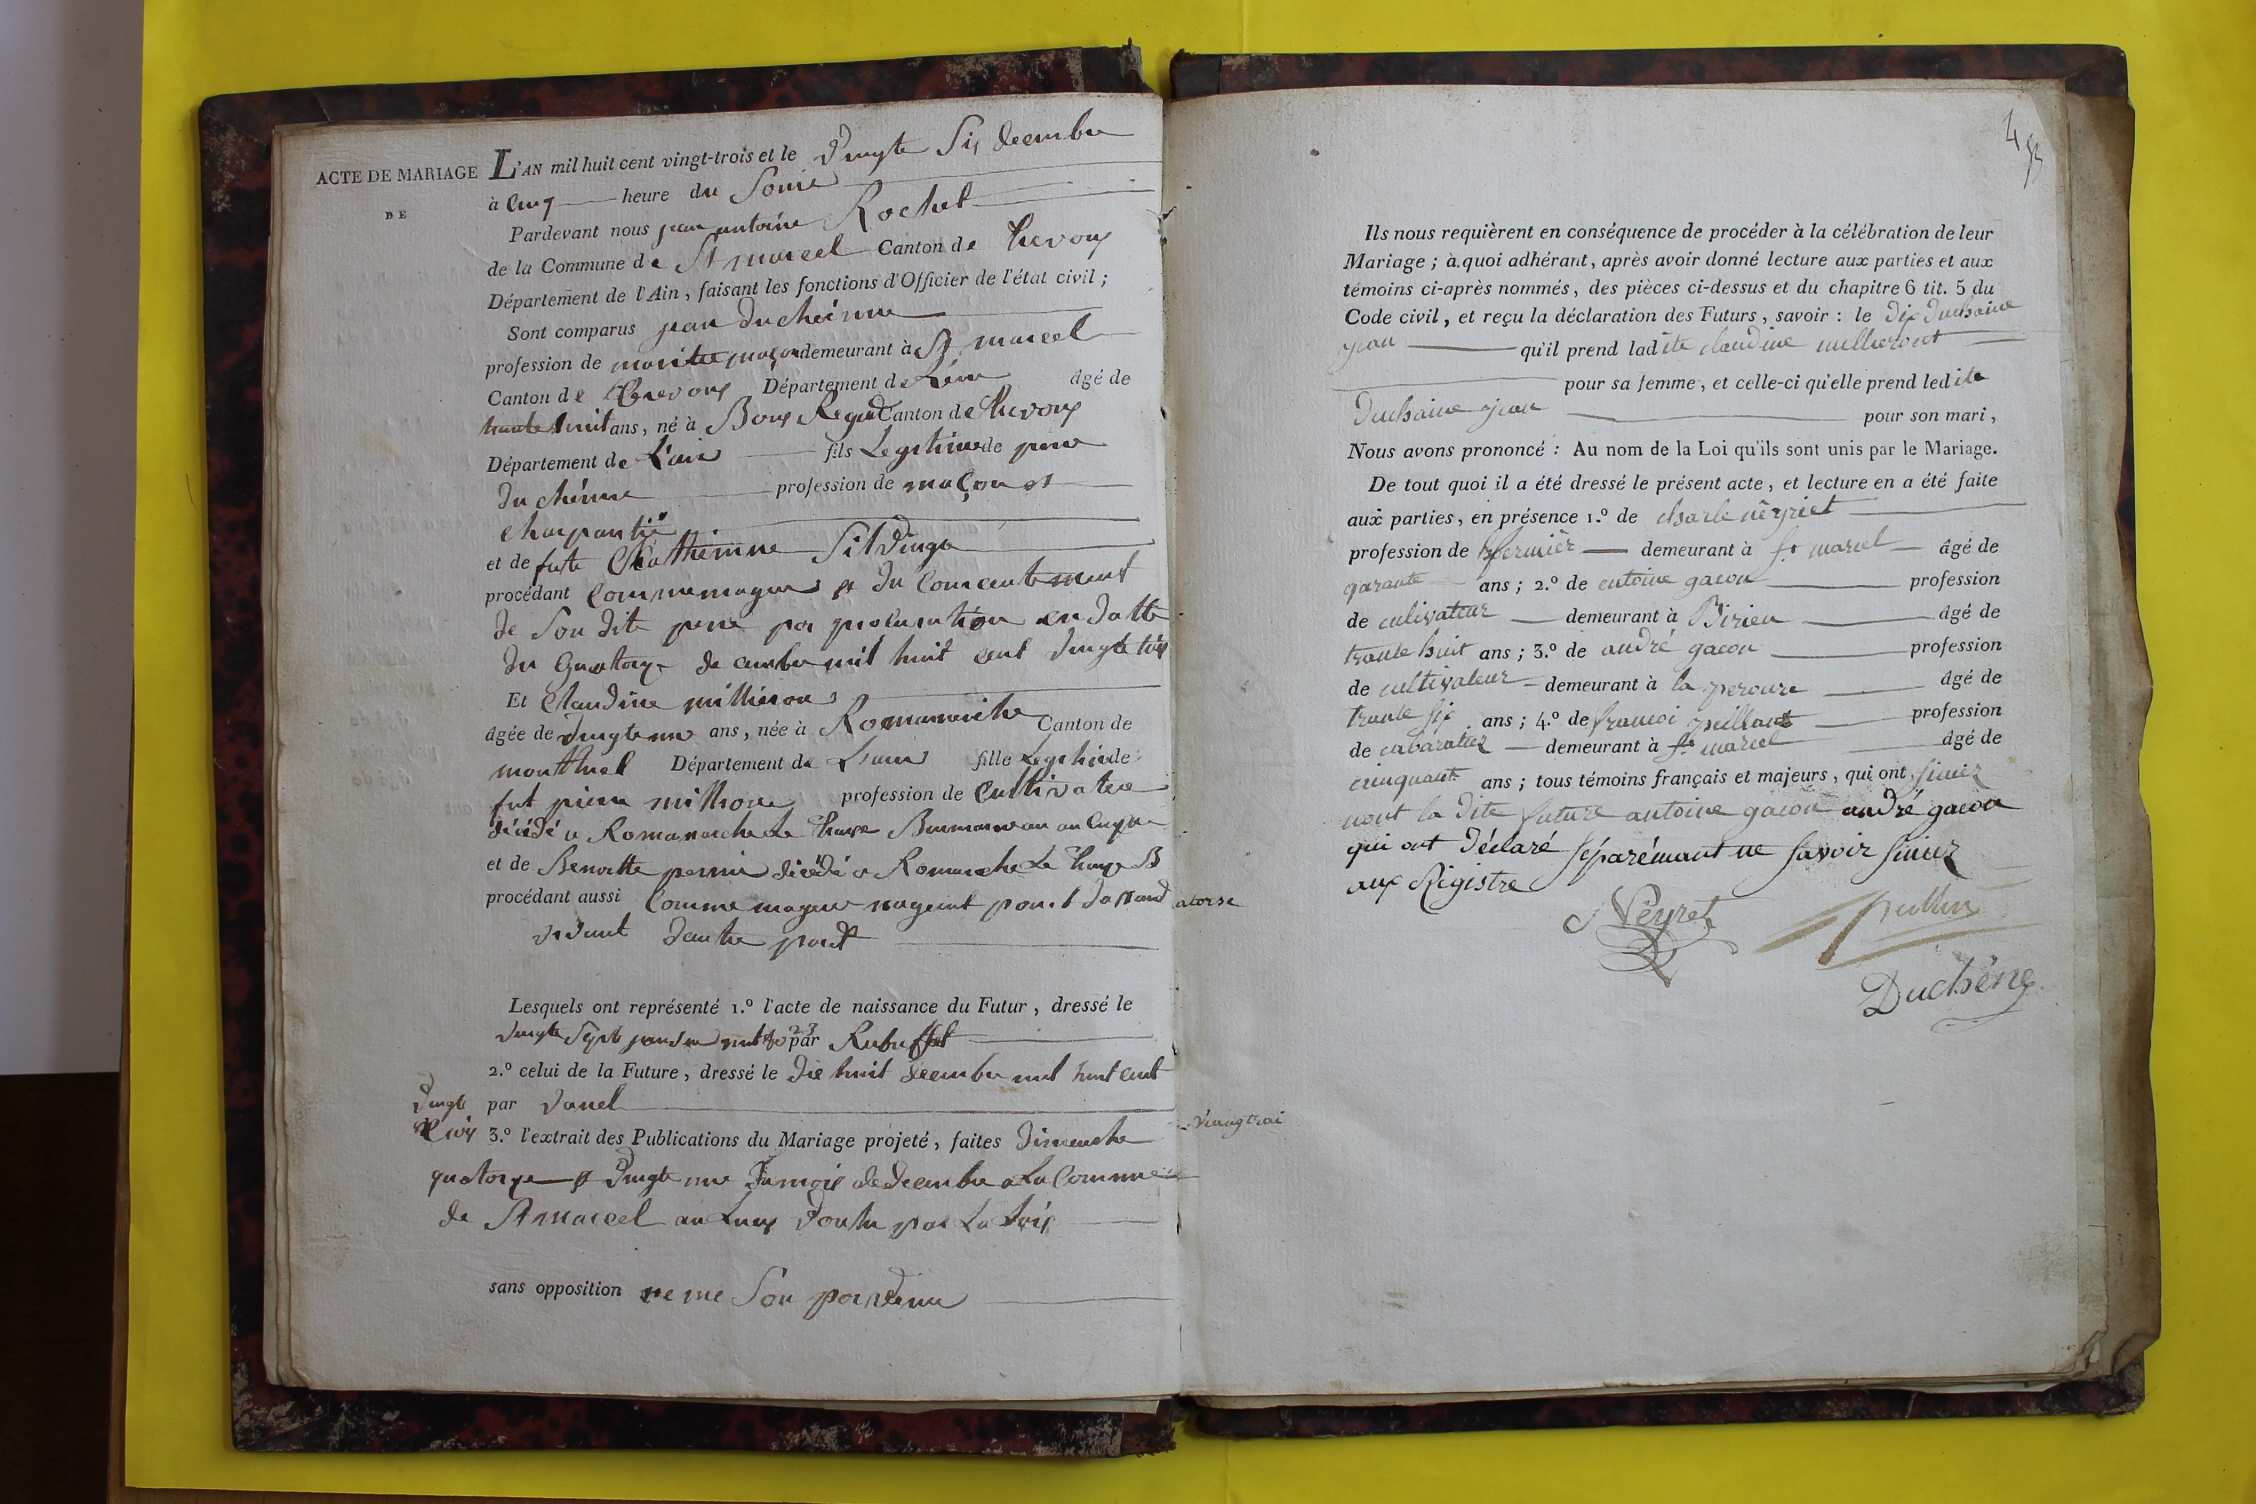 ACTE DE MARIAGE
DE
L'AN mil huit cent vingt-trois et le vingte Six decembre
à Cinq heure du Soire
Pardevant nous jean antoine Rochet
de la Commune de St marcel Canton de trevoux
Département de l'Ain, faisant les fonctions d'Officier de l'état civil;
Sont comparus jean ducheinne
profession de maitre maçon demeurant à St marcel
Canton de trevoux Département de Léin âgé de
trante huit ans, né à Canton de trevoux
Département de L'ain fils Legitime de piere
ducheinne profession de maçon et
charpantié
et de fute Catherinne
procédant Comme mageur et du Concentement
de Son dite pere par procuration en datte
du Quatorze decembre mil huit cent vingte trois
Et Claudine millieron
âgée de vingte une ans, née à Romaneiche Canton de
montluel Département de Lain fille Legitime de
fut piere million profession de Cultivateur
décédé a Romaneiche Le
et de Benoitte perrin décédé a Romaneche Le
procédant aussi Comme mageur
vivant dautre part
Lesquels ont représenté 1.º l'acte de naissance du Futur, dressé le
vingte Sept par Rubuffet
2.º celui de la Future, dressé le dix huit decembre mil huit cent
vingte par
trois 3.º l'extrait des Publications du Mariage projeté, faites dimenche
quatorze et vingte une du mois de decembre a La Commune
de St marcel au Lieux voulu par La Lois
sans opposition
45
Ils nous requièrent en conséquence de procéder à la célébration de leur
Mariage; à quoi adhérant, après avoir donné lecture aux parties et aux
témoins ci-après nommés, des pièces ci-dessus et du chapitre 6 tit. 5 du
Code civil, et reçu la déclaration des Futurs, savoir: le dix duchaine
jean qu'il prend ladite claudine millieront
pour sa femme, et celle-ci qu'elle prend ledite
duchaine jean pour son mari,
Nous avons prononcé: Au nom de la Loi qu'ils sont unis par le Mariage.
De tout quoi il a été dressé le présent acte, et lecture en a été faite
aux parties, en présence 1.º de charle nêyriet
profession de fermièr demeurant à st marcel âgé de
qarante ans; 2.º de entoine gacon profession
de culivateur demeurant à Birieu âgé de
trante huit ans; 3.º de andré gacon profession
de cultivateur demeurant à la peroure âgé de
trante six ans; 4.º de francoi profession
de cabaratier demeurant à st marcel âgé de
cuinquante ans; tous témoins français et majeurs, qui ont sinier
nont la dite future antoine gacon andré gacon
qui ont déclaré séparémant ne savoir sinier
aux Régistre
Neyret
Duchêne
viangtrai